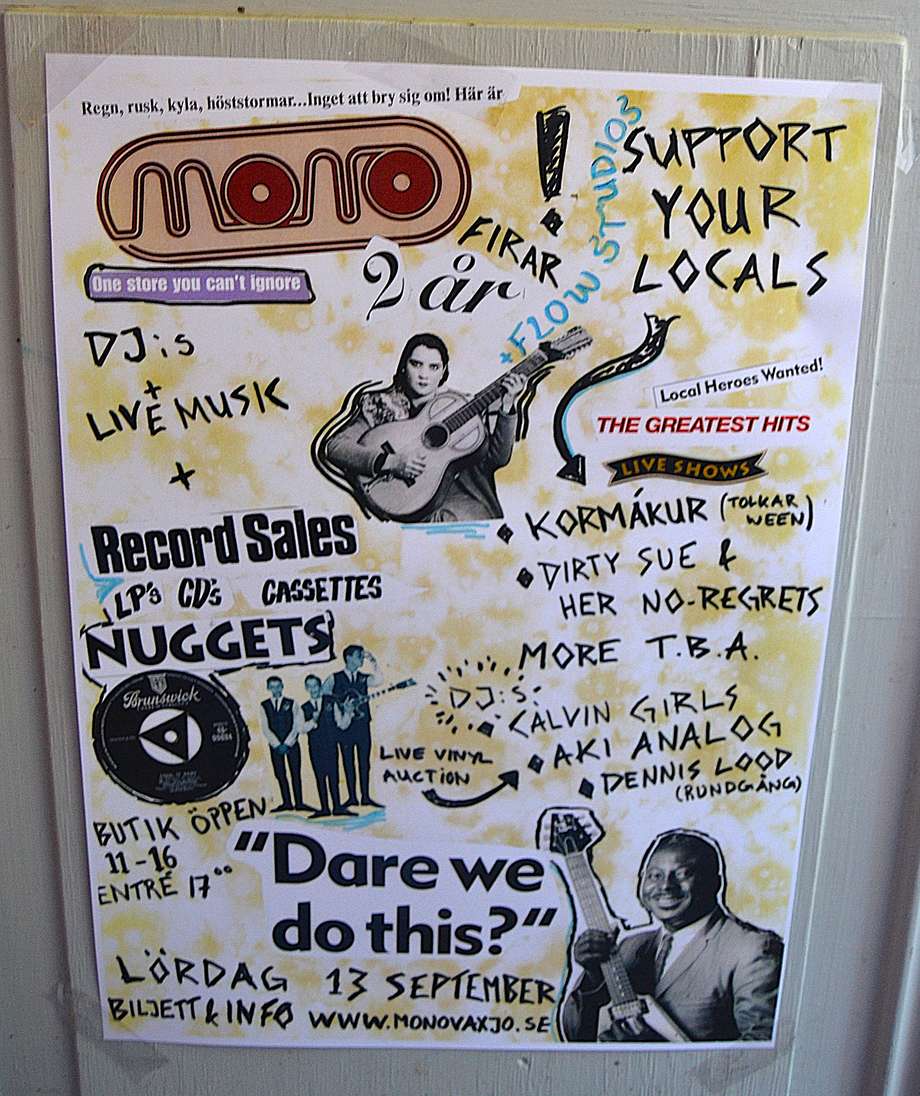 Regn, rusk, kyla, höststormar...Inget att bry sig om! Här är
mono
!
One store you can't ignore
FIRAR
2 år
+FLOW STUDIOS
SUPPORT
YOUR
LOCALS
DJ:s
+
LIVE MUSIC
+
Local Heroes Wanted!
THE GREATEST HITS
LIVE SHOWS
KORMÁKUR (TOLKAR
WEEN)
DIRTY SUE &
HER NO-REGRETS
MORE T.B.A.
Record Sales
LP's CD's CASSETTES
NUGGETS
Brunswick
DJ:s
CALVIN GIRLS
AKI ANALOG
DENNIS LOOD
(RUNDGÅNG)
LIVE VINYL
AUCTION
BUTIK ÖPPEN
11-16
ENTRÉ 17°°
"Dare we
do this?"
LÖRDAG 13 SEPTEMBER
BILJETT & INFO WWW.MONOVAXJO.SE